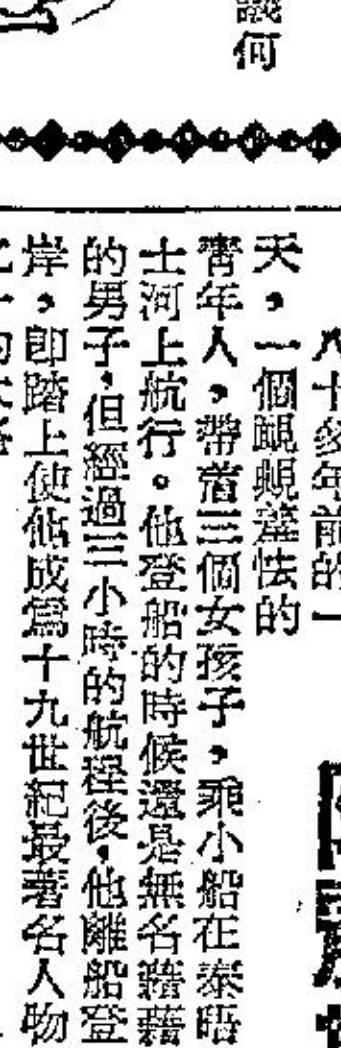 八十多年前的一
天，一個靦覥羞怯的
青年人，帶着三個女孩子，乘小船在泰晤
士河上航行。他登船的時候還是無名藉藉
的男子，但經過三小時的航程後，他離船登
岸，即踏上使他成爲十九世紀最著名人物
何